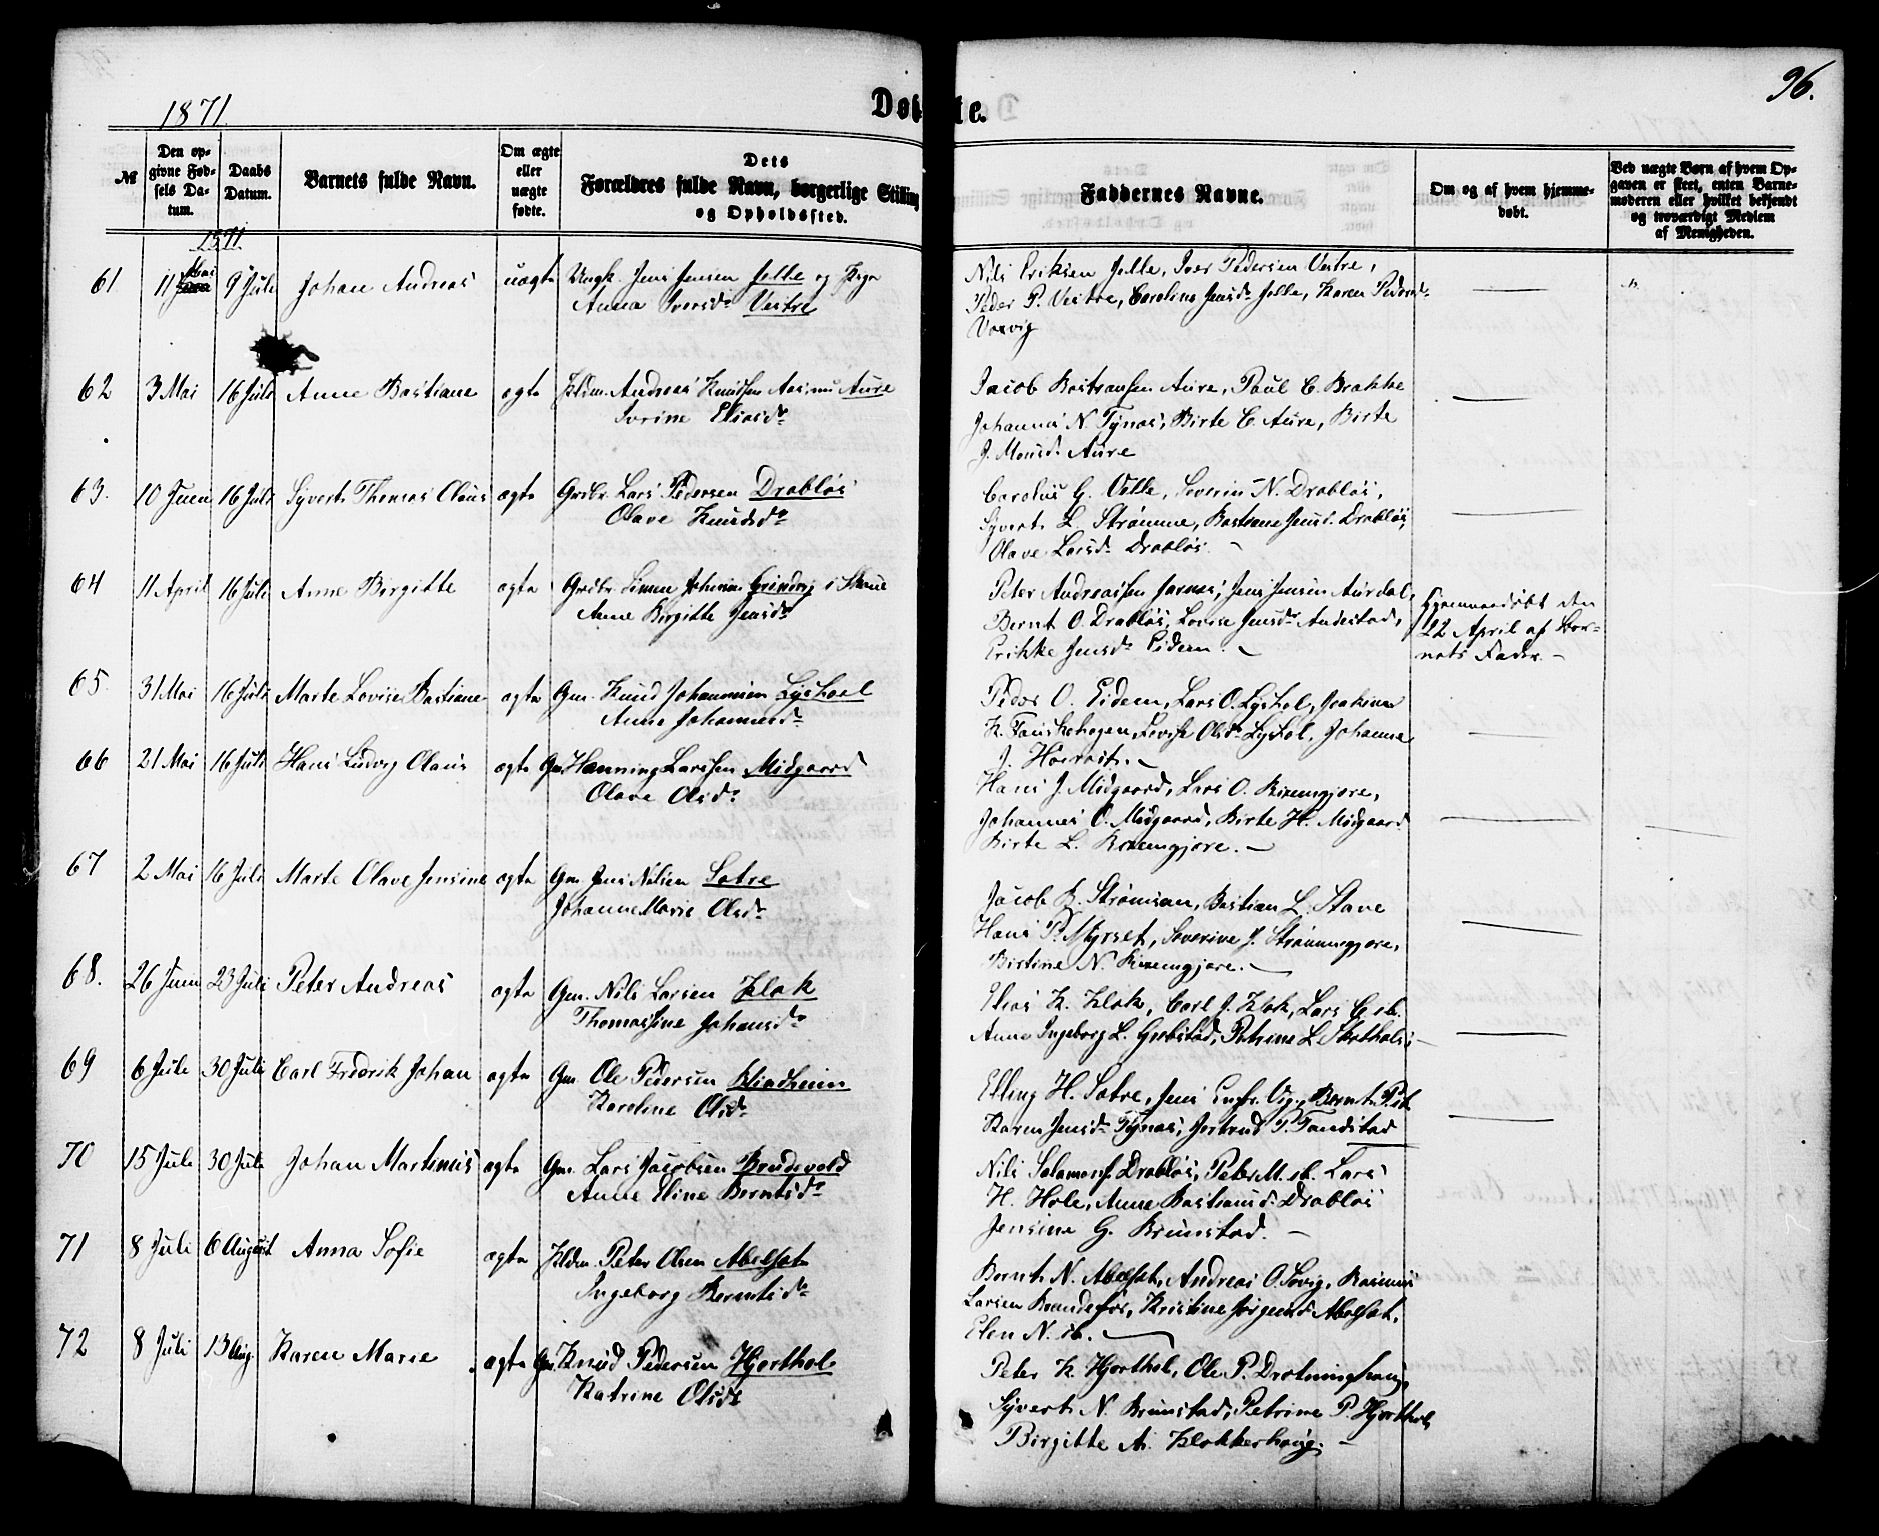 96.
1871.
Døbte.
№
Den opgivne Fødsels Datum.
Daabs Datum.
Barnets fulde Navn.
Om ægte eller uægte fødte.
Dets Forældres fulde Navn, borgerlige Stilling og Opholdssted.
Faddernes Navne.
Om og af hvem hjemmedøbt.
Ved uægte Børn af hvem Opgaven er skeet, enten Barnemoderen eller hvilket bekjendt og troværdigt Medlem af Menigheden.
1871
61 11 Mai 9 Juli Johan Andreas uægte Ungk. Jens Jensen Jelle og Pige
Anna Iversdr Vestre
Nils Eriksen Jelle, Iver Pedersen Vestre,
Peder P. Vestre, Caroline Jensdr Jelle, Karen Pedersdr
62 3 Mai 16 Juli Anne Bastiane ægte Andreas Knudsen Aure
Sivrine Eliasdr
Jacob Bastiansen Aure, Paul C. Brakke
Johannes N. Tynes, Birte C. Aure, Birte
J. Monsdr Aure
63. 10 Juni 16 Juli Syvert Thomas Olaus ægte Grdbr. Lars Pedersen Drabløs
Olave Knudsdr
Carolus G. Velle, Severin N. Drabløs,
Syvert L. Strømme, Bastiane Jensd. Drabløs,
Olave Larsdr Drabløs.
64 11 April 16 Juli Anne Birgitte ægte Grdbr. Simen i
Anne Birgitte Jensdr
Peter Andreassen Jarnes, Jens Jensen Aurdal,
Bernt O. Drabløs, Lovise Jensdr Andestad,
Erikke Jensdr Eidem.
Hjemmedøbt den
22 April af Bar-
nets Fader.
65 31 Mai 16 Juli Marte Lovise Bastiane ægte Gm. Knud Johannesen Lyshoel
Anne Johannesdr
Peder O. Eidem, Lars O. Lyshol, Joakim
K. Fauskehagen, Lovise Olsdr Lyshol, Johanne
66 21 Mai 16 Juli Hans Ludvig Olaus ægte Gm. Henning Larssen Midgaard
Olave Olsdr
Hans J. Midgaard, Lars O. Riksemgjøre,
Johannes O. Midgaard, Birte H. Midgaard
Birte L.
67 2 Mai 16 Juli Marte Olave Jensine ægte Gm. Jens Nilsen Sætre
Johanne Marie Olsdr
Jacob B. Strømmen, Bastian L. Stave
Hans P. Myrset, Severine J. Strømmegjøre,
Bistine N.
68. 26 Juni 23 Juli Peter Andreas ægte Gm. Nils Larsen Klok
Thomassine Johansdr
Elias K. Klok, Carl J. Klok, Lars C. ib.
Anne Ingeborg L. Grebstad, Petrine L.
69 6 Juli 30 Juli Carl Fredrik Johan ægte Gm. Ole Pedersen Blindheim
Karoline Olsdr
Elling H. Sætre, Jens Vig, Bernt P. ib.
Karen Jensdr Tynes, Jertrud P. Tandstad
70 15 Juli 30 Juli Johan Martinus ægte Gm. Lars Jacobsen Brudevold
Anne Eline Berntsdr
Nils Salamons. Drabløs, Peter M. ib. Lars
H. Hole, Anne Bastiansd. Drabløs
Jensine G. Brunstad.
71 8 Juli 6 August Anna Sofie ægte Peter Olsen Abelsæt
Ingeborg Berntsdr
Bernt N. Abelsæt, Andreas O. Sovig, Rasmus
Larsen Brandefos, Kristine Jørgensd. Abelsæt,
Elen N. ib.
72 8 Juli 13 Aug. Karen Marie ægte Gm. Knud Pedersen Hjorthol
Katrine Olsdr
Peter K. Hjorthol, Ole P. Drotninghaug,
Syvert N. Brunstad, Petrine P. Hjorthol,
Birgitte A. Klokkerhaug.